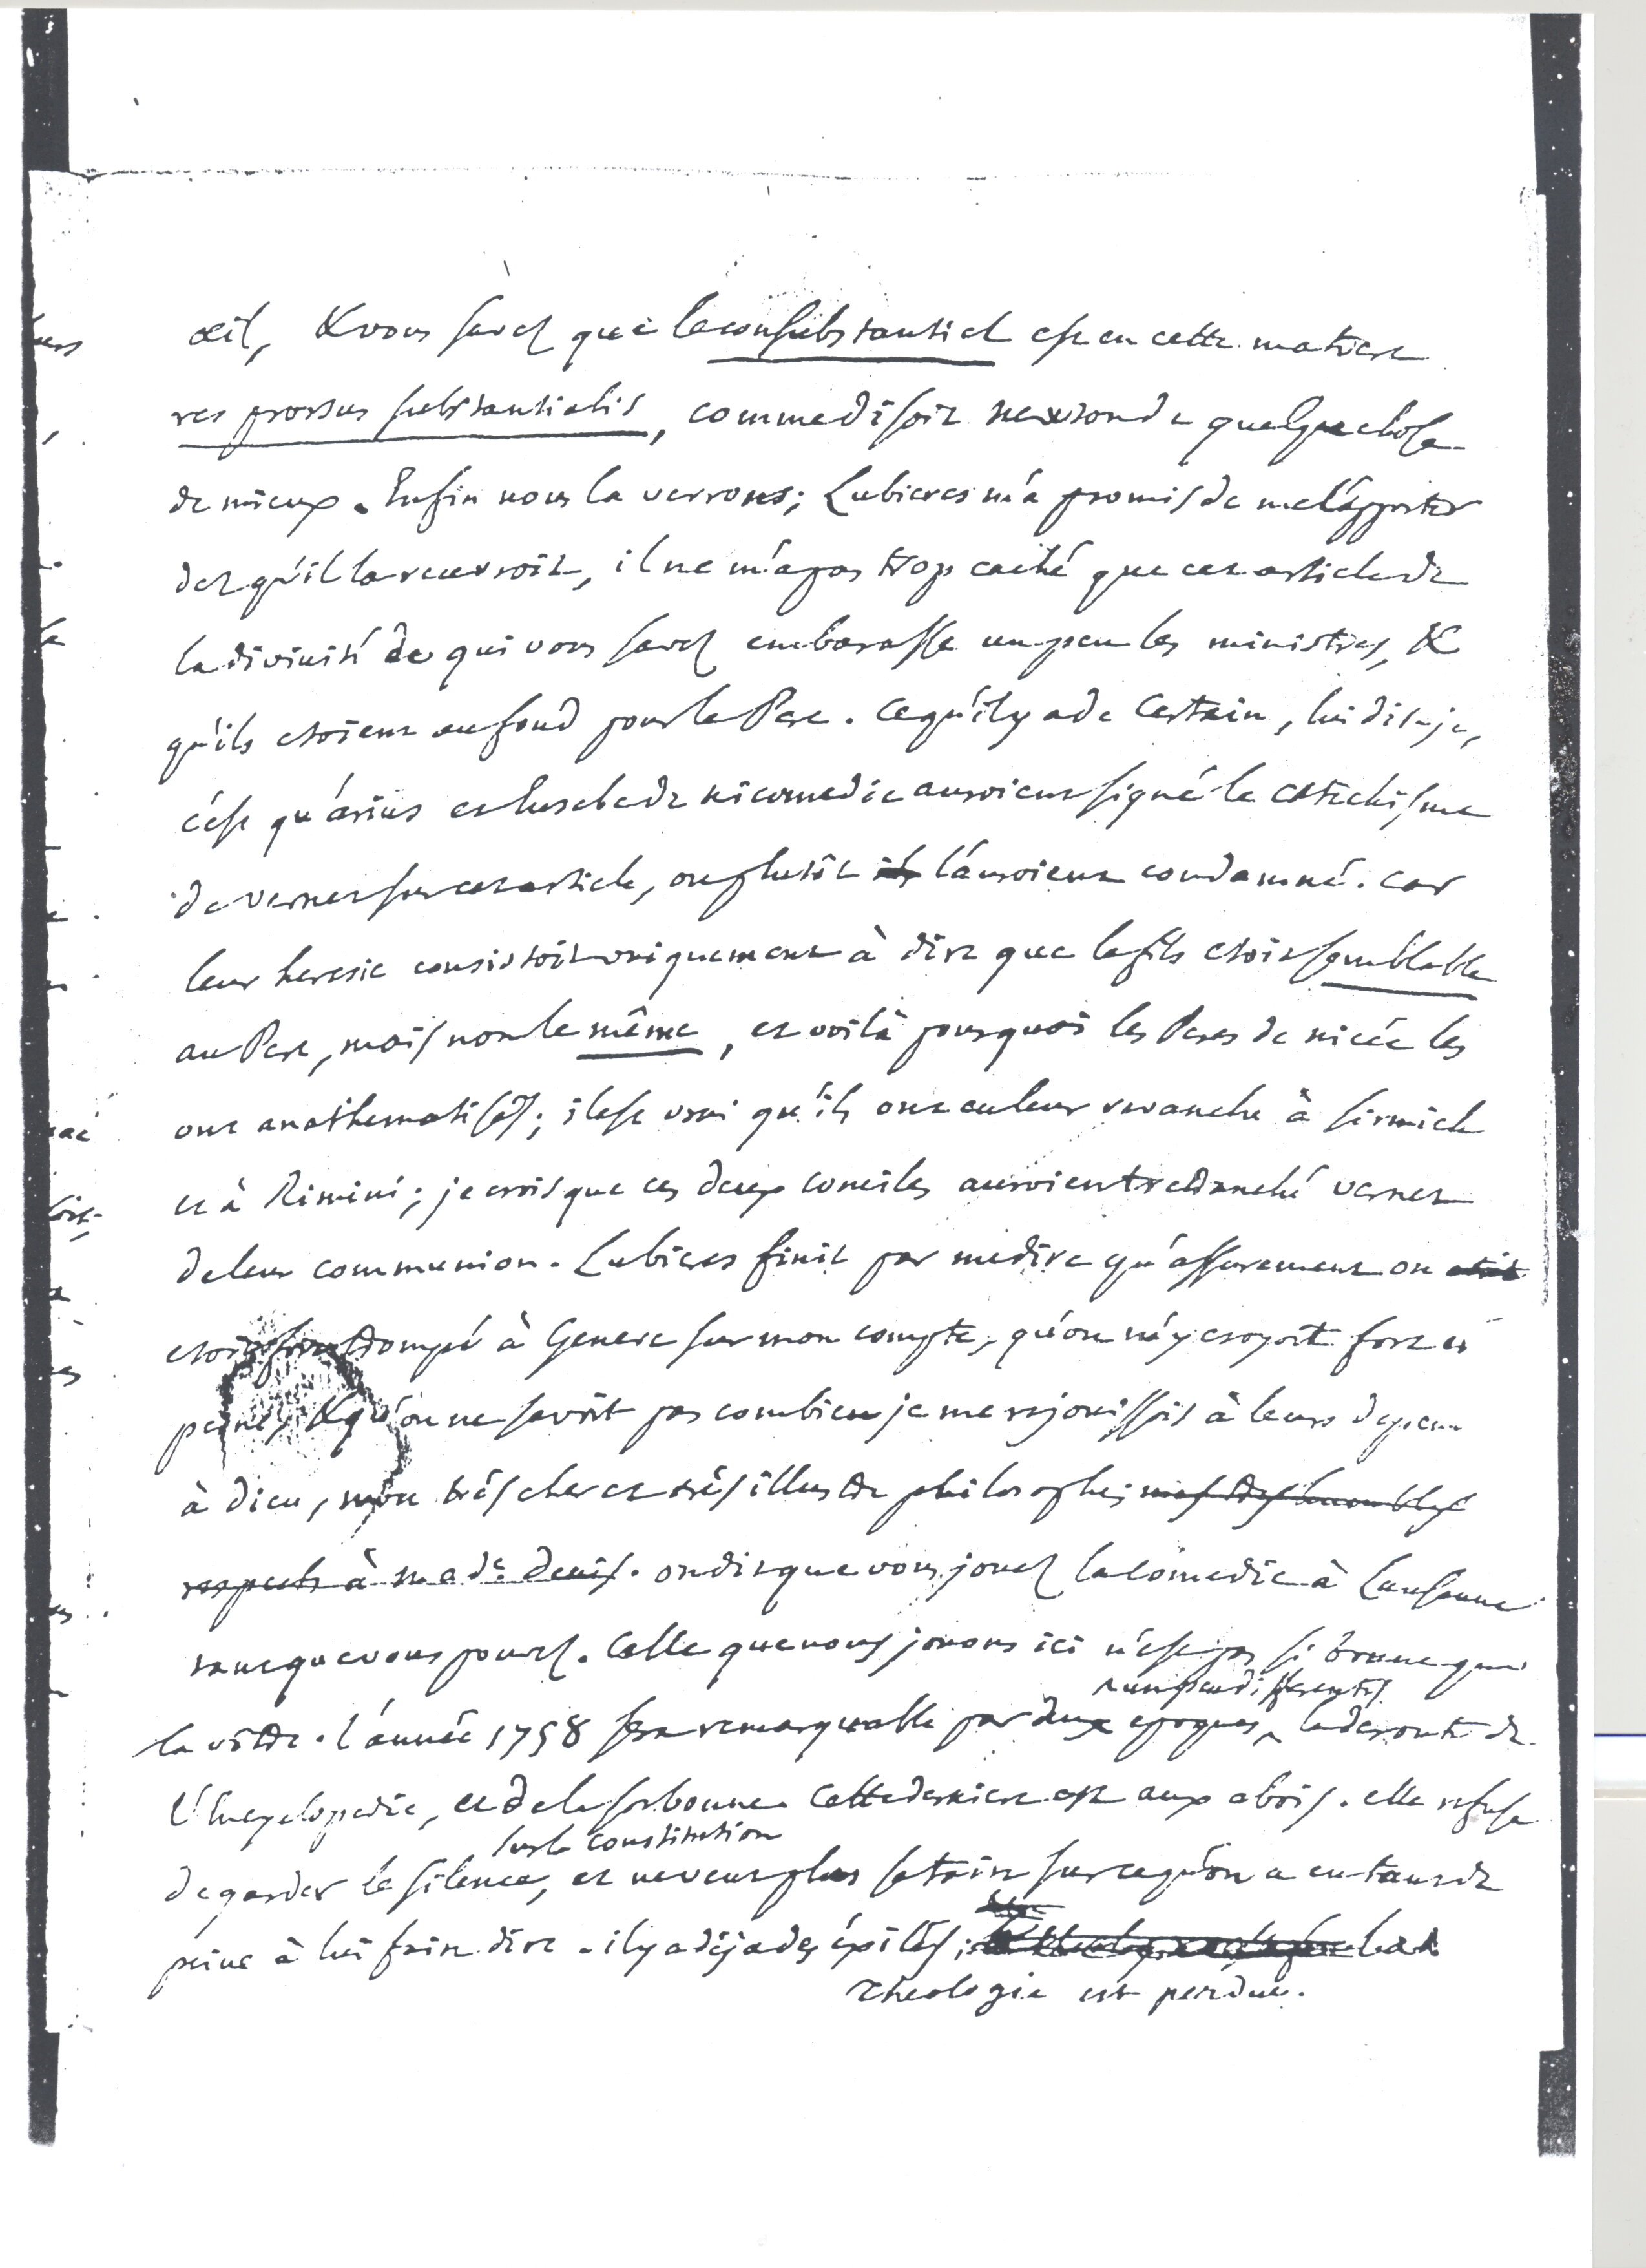 œil, & vous savez que le consubstantiel est en cette matiere
res prorsus substantialis, comme disoit newton de quelque chose
de mieux. Enfin nous la verrons; Lubieres m'a promis de me l'apporter
dez qu'il la recevroit, il ne m'a pas trop caché que cet article de
la divinité de qui vous savez embarasse un peu les ministres, &
qu'ils etoient au fond pour le Pere. Ce qu'il y a de certain, lui dis-je,
c'est qu'arius et Eusebe de nicomedie auroient signé le catechisme
de vernet sur cet article, ou plutôt ils l'auroient condamné. car
leur heresie consistoit uniquement à dire que le fils etoit semblable
au Pere, mais non le même, et voilà pourquoi les Peres de nicée les
ont anathematisés; il est vrai qu'ils ont eu leur revanche à sirmich
et à Rimini; je crois que ces deux conciles auroient retranché vernet
de leur communion. Lubieres finit par me dire qu'assurement on etoit
etoit fort trompé à Geneve sur mon compte, qu'on m'y croyoit fort en
peine, & qu'on ne savoit pas combien je me rejouissois à leurs depens
à dieu, mon très cher et très illustre philosophe; mes très humbles
respects à made. denis. on dit que vous jouez la comedie à Lausanne
tant que vous pouvez. Celle que nous jouons ici n'est pas si bonne que
la vôtre. l'année 1758 sera remarquable par deux epoques
un peu differentes
la deroute de
l'Encyclopedie, et de la sorbonne. Cette derniere est aux abois. elle refuse
de garder le silence
sur la constitution
, et ne veut plus se taire sur ce qu'on a eu tant de
peine à lui faire dire. il y a déja des éxilés; la
Theologie est perdue.